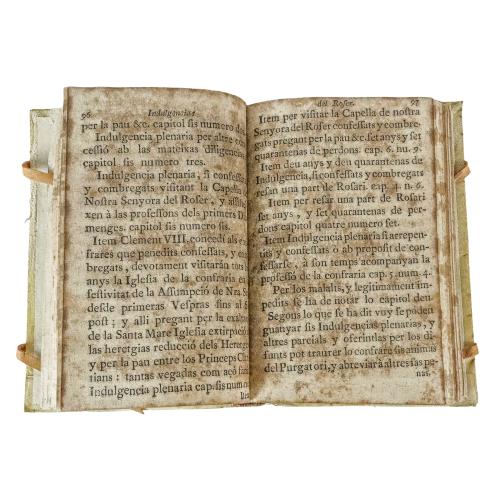 96 Indulgencias
per la pau &c. capitol sis numero dos.
Indulgencia plenaria per altre con
cessió ab las mateixas diligencias
capitol sis numero tres.
Indulgencia plenaria, si confessats
y combregats visitant la Capella
Nostra Senyora del Roser, y assis
xen à las professons dels primers Di
menges. capitol sis numero sis.
Item Clement VIII. concedí als c
frares que penedits confessats, y co
bregats, devotament visitarán tots
anys la Iglesia de la confraria en
festivitat de la Assumpció de Nra. S
desde primeras Vespras fins al
post; y allí pregant per la exalt
de la Santa Mare Iglesia extirpció
las heretgias reducció dels Heretg
y per la pau entre los Princeps Ch
tians: tantas vegadas com açò faràn
Indulgencia plenaria cap. sis num
del Roser. 97
Item per visitar la Capella de nostra
Senyora del Roser confessats y combre-
gats pregant per la pau &c set anys y set
quarantenas de perdons. cap. 6. nu. 9.
Item deu anys y deu quarantenas de
Indulgencia, si confessats y combregats
resan una part de Rosari. cap. 4. n. 6.
Item per resar una part de Rosari
set anys, y set quarantenas de per-
dons capitol quatre numero set.
Item Indulgencia plenaria si arrepen-
tits y confessats o ab proposit de con-
fessarse, à son temps acompanyan la
professó de la confraria cap. 5. num. 4.
Per los malalts, y legitimament im-
pedits se ha de notar lo capitol deu.
Segons lo que se ha dit vuy se poden
guanyar sis Indulgencias plenarias, y
altres parcials y oferintlas per los di-
funts pot traurer lo confrare sis animas
del Purgatori, y abreviará altres sas pe-
nas.